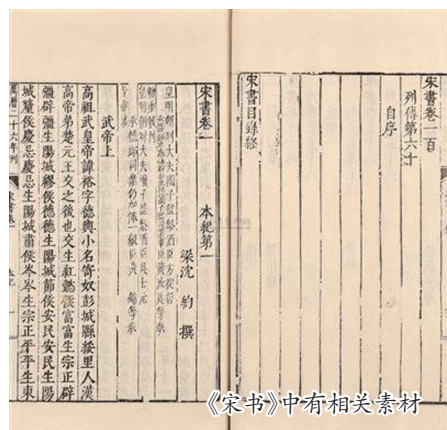 宋書卷一百
列傳第六十
自序
宋書目錄終
宋書卷一 本紀第一
梁沈約撰
皇明朝列大夫國子監祭酒臣方從哲等奉
勑重校刊
武帝上
高祖武皇帝諱裕字德輿小名寄奴彭城縣綏里人漢
高帝弟楚元王交之後也交生紅懿侯富富生宗正辟
彊辟彊生陽城繆侯德德生陽城節侯安民安民生陽
城釐侯慶忌慶忌生陽城肅侯岑岑生宗正平平生東
萬曆二十六年刊
《宋书》中有相关素材